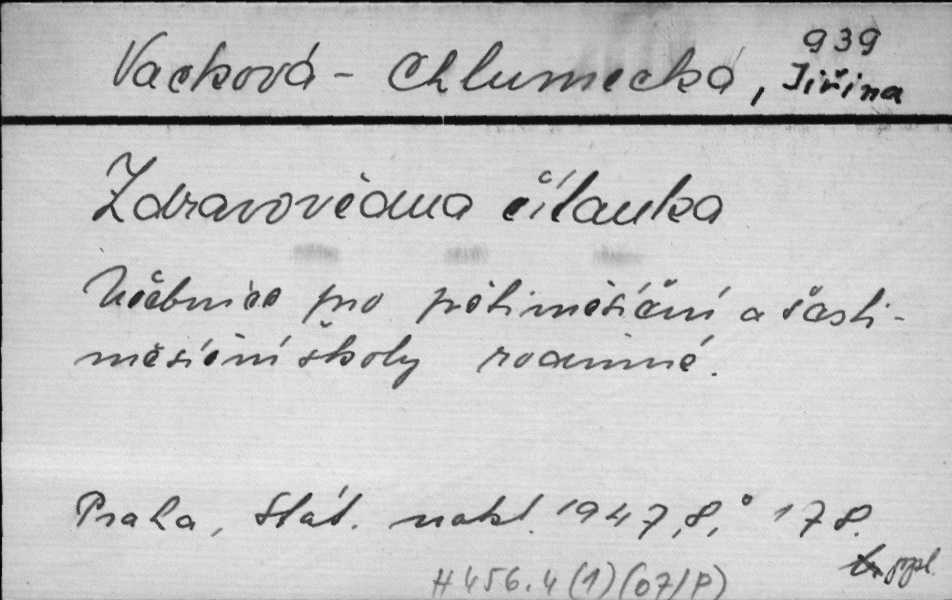 939
Vacková - Chlumecká, Jiřina
Zdravovědná čítanka
Učebnice pro pětiměsíční a šesti-
měsíční školy rodinné.
Praha, Stát. nakl. 1947, 8,° 178.
H 456.4 (1) (07/P)